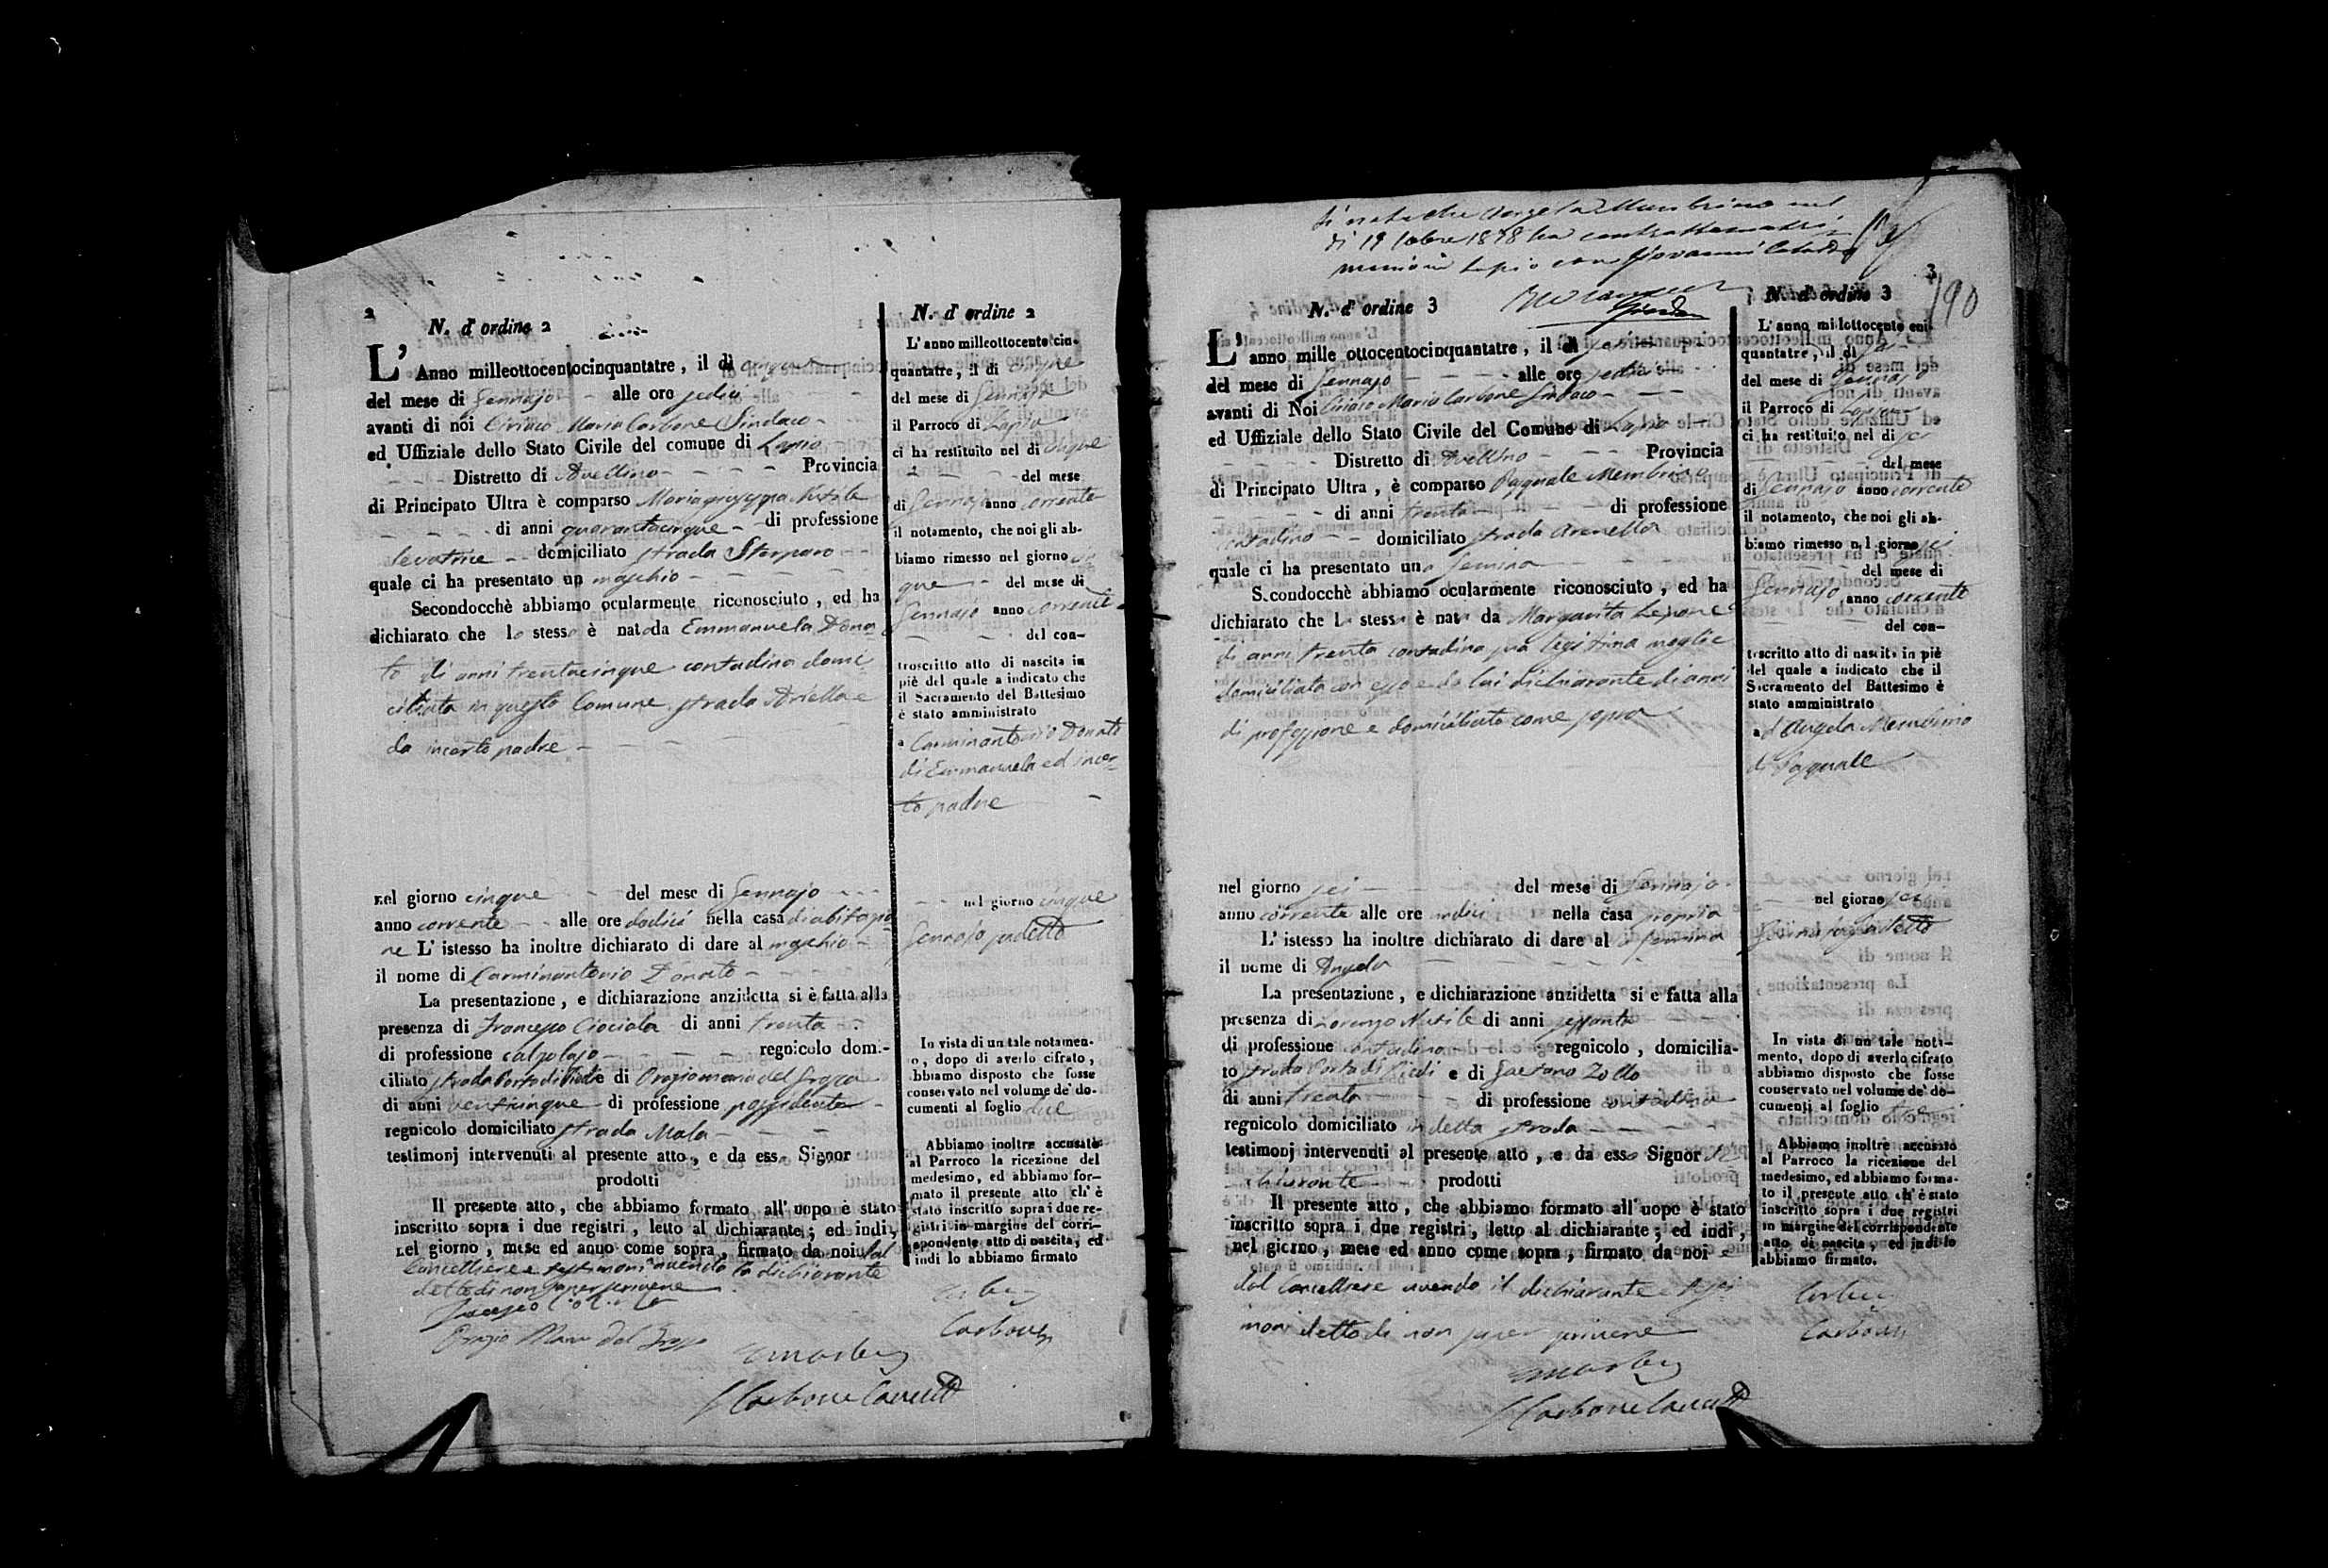 2
N. d' ordine 2
L' Anno milleottocentocinquantatre, il dì cinque
del mese di Gennajo alle ore sedici
avanti di noi Ciriaco Maria Carbone Sindaco
ed Uffiziale dello Stato Civile del comune di Lapio
Distretto di Avellino Provincia
di Principato Ultra è comparso Mariagiuseppa Nutile
di anni quarantacinque di professione
Levatrice domiciliato strada Sterparo
quale ci ha presentato un maschio
Secondocchè abbiamo ocularmente riconosciuto, ed ha
dichiarato che lo stesso è nato da Emmanuela Dona
to di anni trentacinque contadina domi
ciliata in questo Comune strada Ariella e
da incerto padre
nel giorno cinque del mese di Gennajo
anno corrente alle ore dodici nella casa di abitazio
ne L' istesso ha inoltre dichiarato di dare al maschio
il nome di Carminantonio Donato
La presentazione, e dichiarazione anzidetta si è fatta alla
presenza di Francesco Ciociola di anni trenta
di professione calzolajo regnicolo domi-
ciliato strada Porta di Piedi e di Oraziomaria del Grosso
di anni venticinque di professione possidente
regnicolo domiciliato strada Mala
testimonj intervenuti al presente atto, e da ess Signor
prodotti
Il presente atto, che abbiamo formato all' uopo è stato
inscritto sopra i due registri, letto al dichiarante; ed indi,
nel giorno, mese ed anno come sopra, firmato da noi dal
Cancelliere e testimoni avendo la dichiarante
detto di non saper scrivere
Orazio Maria del Grosso
Carbone Cancell
N. d' ordine 2
L' anno milleottocentocin-
quantatre, il dì cinque
del mese di Gennajo
il Parroco di Lapio
ci ha restituito nel dì cinque
del mese
di Gennajo anno corrente
il notamento, che noi gli ab-
biamo rimesso nel giorno cin
que del mese di
Gennajo anno corrente
del con-
troscritto atto di nascita in
piè del quale a indicato che
il Sacramento del Battesimo
è stato amministrato
a Carminantonio Donato
di Emmanuela ed incer-
to padre
nel giorno cinque
Gennajo sudetto
In vista di un tale notamen-
to, dopo di averlo cifrato,
abbiamo disposto che fosse
conservato nel volume de' do-
cumenti al foglio due
Abbiamo inoltre accusato
al Parroco la ricezione del
medesimo, ed abbiamo for-
mato il presente atto ch' è
stato inscritto sopra i due re-
gistri in margine del corri-
spondente atto di nascita, ed
indi lo abbiamo firmato
Carbone
Si nota che Angela Membrino nel
dì 19 1878 ha contratto matri
monio in Lapio con Giovanni
3
190
N. d' ordine 3
L' anno mille ottocentocinquantatre, il dì sei
del mese di Gennajo alle ore sedici
avanti di Noi Ciriaco Maria Carbone Sindaco
ed Uffiziale dello Stato Civile del Comune di Lapio
Distretto di Avellino Provincia
di Principato Ultra, è comparso Pasquale Membrino
di anni trenta di professione
contadino domiciliato strada Arenella
quale ci ha presentato una femina
Secondocchè abbiamo ocularmente riconosciuto, ed ha
dichiarato che la stessa è nata da Margarita Lepore
di anni trenta contadina sua legittima moglie
domiciliata con esso e da lui dichiarante di anni
di professione e domiciliato come sopra
nel giorno sei del mese di Gennajo
anno corrente alle ore undici nella casa propria
L' istesso ha inoltre dichiarato di dare al a femina
il nome di Angela
La presentazione, e dichiarazione anzidetta si e fatta alla
presenza di Lorenzo Nutile di anni sessanta
di professione contadino regnicolo, domicilia-
to strada Porta di Piedi e di Gaetano Zollo
di anni trenta di professione contadino
regnicolo domiciliato in detta strada
testimonj intervenuti al presente atto, e da esso Signor di
chiarante prodotti
Il presente atto, che abbiamo formato all' uopo è stato
inscritto sopra i due registri, letto al dichiarante; ed indi,
nel giorno, mese ed anno come sopra, firmato da noi e
dal Cancelliere avendo il dichiarante e testi
moni detto di non saper scrivere
Carbone Cancell
N. d' ordine 3
L' anno millottocento cin-
quantatre, il dì sei
del mese di Gennajo
il Parroco di Lapio
ci ha restituito nel dì sei
del mese
di Gennajo anno corrente
il notamento, che noi gli ab-
biamo rimesso nel giorno sei
del mese di
Gennajo anno corrente
del con-
troscritto atto di nascita in piè
del quale a indicato che il
Sacramento del Battesimo è
stato amministrato
ad Angela Membrino
di Pasquale
nel giorno sei
Gennajo sudetto
In vista di un tale nota-
mento, dopo di averlo cifrato
abbiamo disposto che fosse
conservato nel volume de' do-
cumenti al foglio tre
Abbiamo inoltre accusato
al Parroco la ricezione del
medesimo, ed abbiamo forma-
to il presente atto ch' è stato
inscritto sopra i due registri
in margine del corrispondente
atto di nascita, ed indi lo
abbiamo firmato.
Carbone